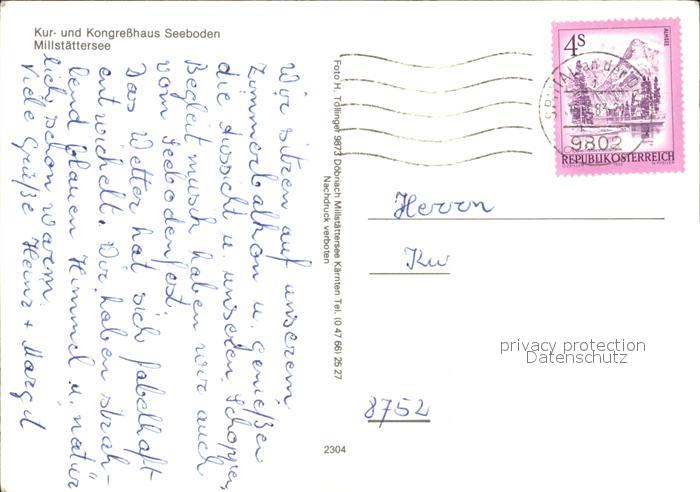 Kur- und Kongreßhaus Seeboden
Millstättersee
Wir sitzen auf unserem
Zimmerbalkon u. genießen
die Aussicht u. unseren Schoppen,
Begleitmusik haben wir auch
vom Seebodenfest.
Das Wetter hat sich fabelhaft
entwickelt. Wir haben strah-
lend blauen Himmel u. natür
lich schon warm.
Viele Grüße Heinz + Margit
Foto H. Tollinger 9873 Döbriach Millstättersee Kärnten Tel. (0 47 66) 25 27
Nachdruck verboten
2304
ALMSEE
4S
an der
83-21
9802
REPUBLIK ÖSTERREICH
Herrn
Kw
8752
privacy protection
Datenschutz